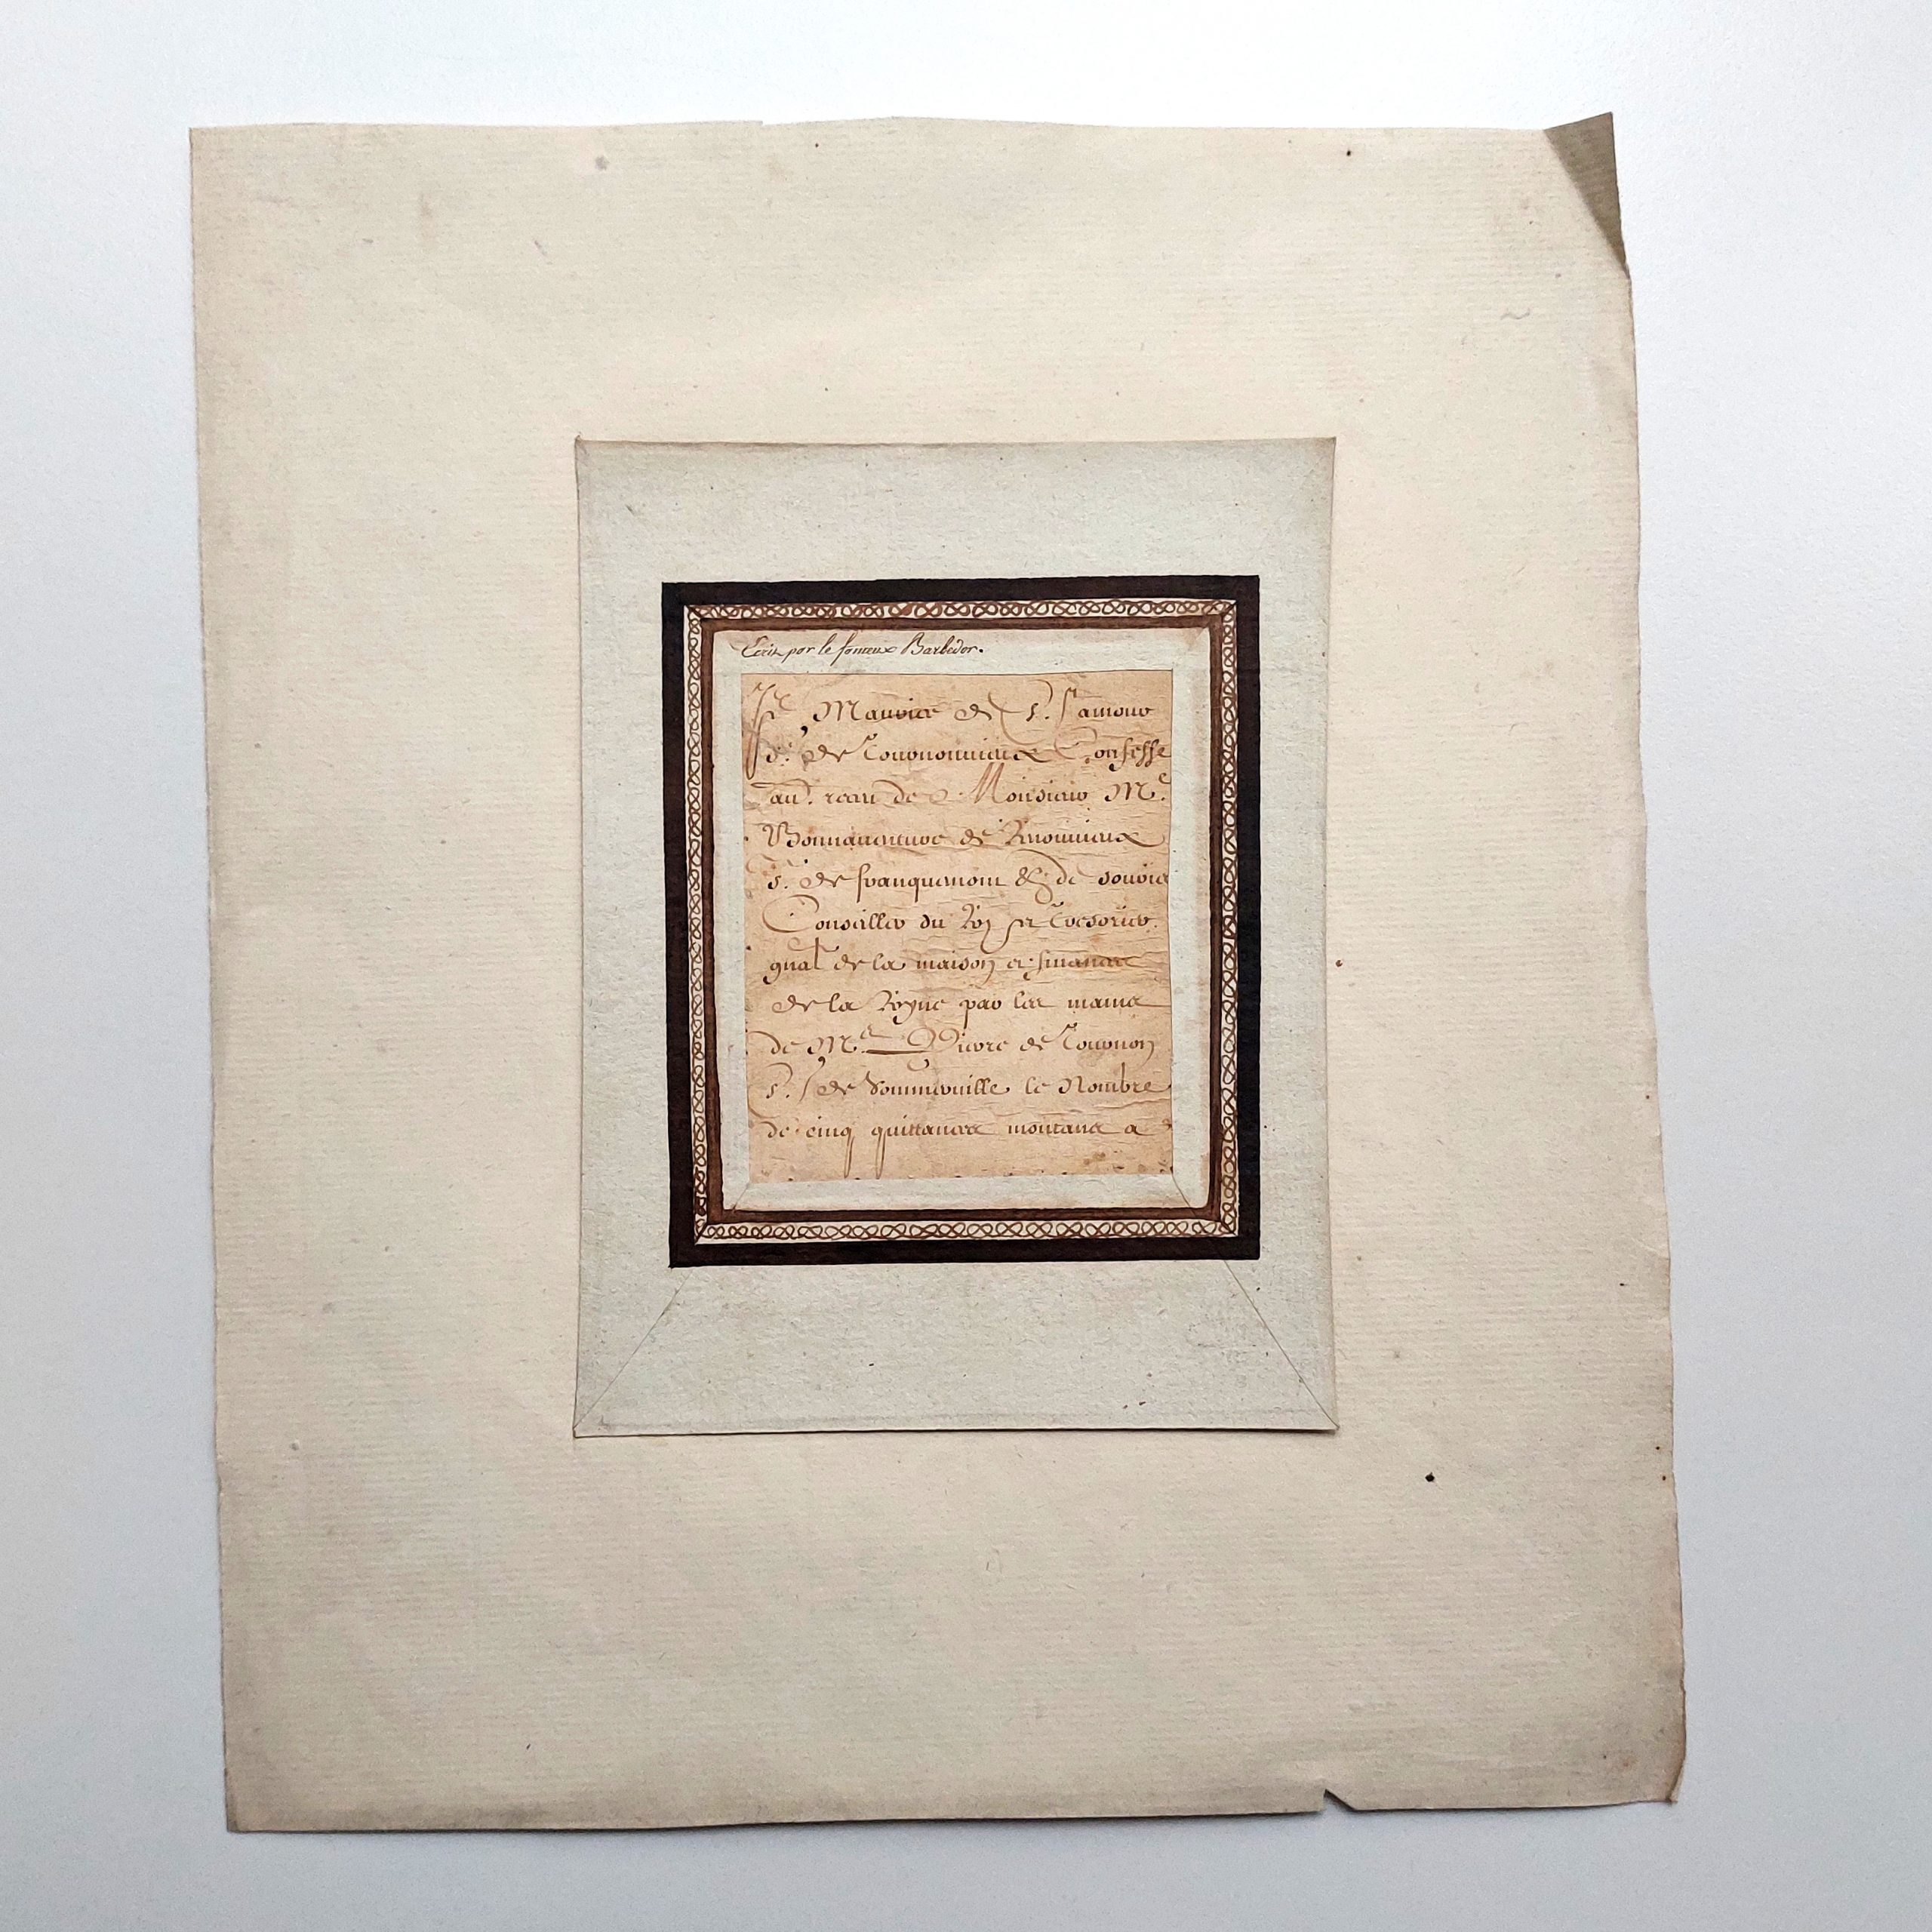 Ecrit par le fameux Barbedor.
Je Maurice de S. Lamour
s.r de Tournonnieux Confesse
de Monsieur M.e
Bonnaventure de
s.r de franquemont & de
Conseiller du Roy et Tresorier
gnal de la maison et finances
de la Royne par les mains
de M.e Pierre de Tournon
s.r de Sommeville le Nombre
de cinq quittances montans a